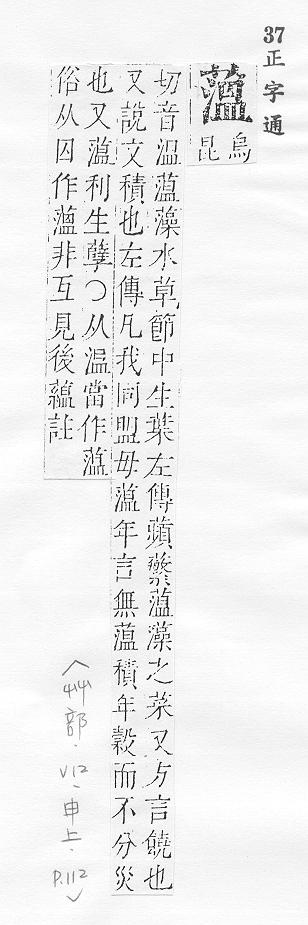 37正字通
薀
烏昆
切音温薀藻水草節中生葉左傳蘋蘩薀藻之菜又方言饒也
又說文積也左傳凡我同盟毋薀年言無薀積年穀而不分災
也又薀利生孽○从温當作薀
俗从囚作蕰非互見後蘊註
(艸部.V12.申上.P.112)